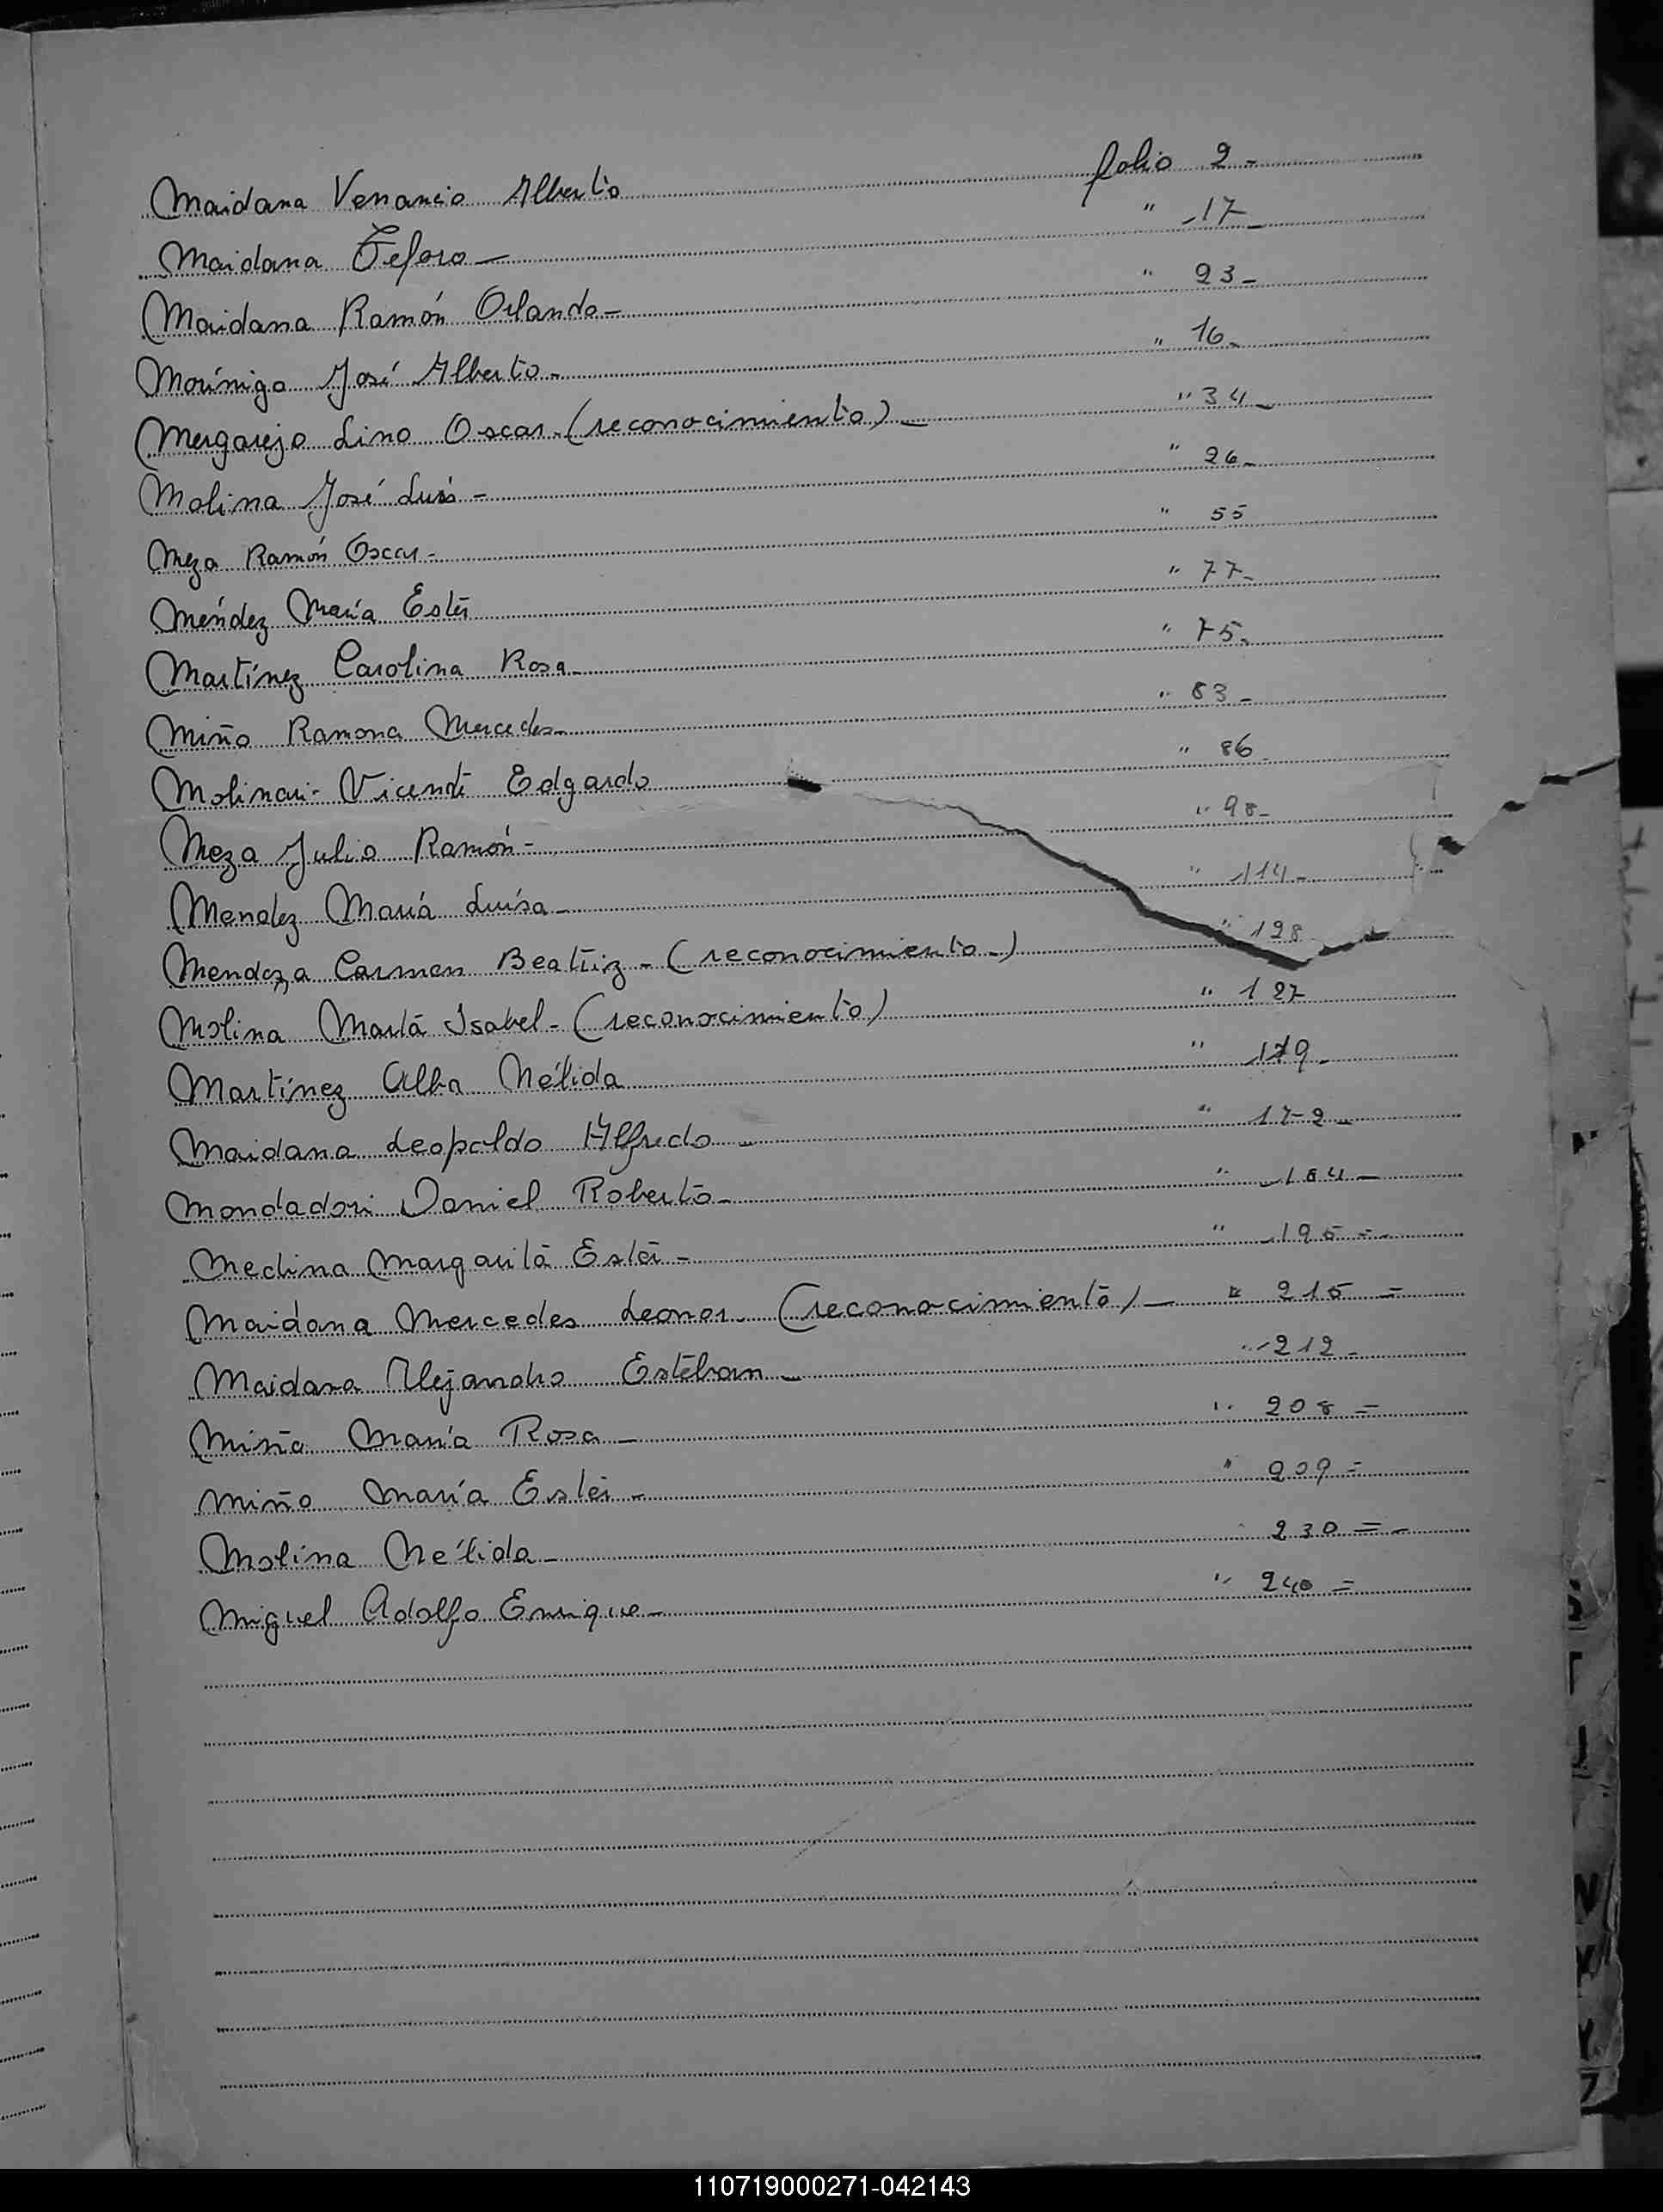 Maidana Venancio Alberto folio 2-
Maidana Teforo - " 17-
Maidana Ramón Orlando - " 23-
Moríniga José Alberto - " 16-
Mergarejo Lino Oscar - (reconocimiento) - " 34-
Molina José Luis - " 26-
Meza Ramón Oscar - " 55
Méndez María Ester " 77-
Martínez Carolina Rosa - " 75-
Miño Ramona Mercedes - " 83-
Molinari - Vicente Edgardo " 86
Meza Julio Ramón - " 98-
Mendez María Luisa - " 114-
Mendoza Carmen Beatriz - (reconocimiento -) " 128
Molina Marta Isabel - (reconocimiento) " 127
Martínez Alba Nélida " 179-
Maidana Leopoldo Alfredo - " 172-
Mondadori Daniel Roberto - " 184-
Medina Margarita Ester - " 195=-
Maidana Mercedes Leonor. (reconocimiento) - " 215=
Maidana Alejandro Esteban - " 212-
Miño María Rosa - " 208=
Miño María Ester - " 209=
Molina Nélida - " 230=-
Miguel Adolfo Enrique - " 240=
110719000271-042143